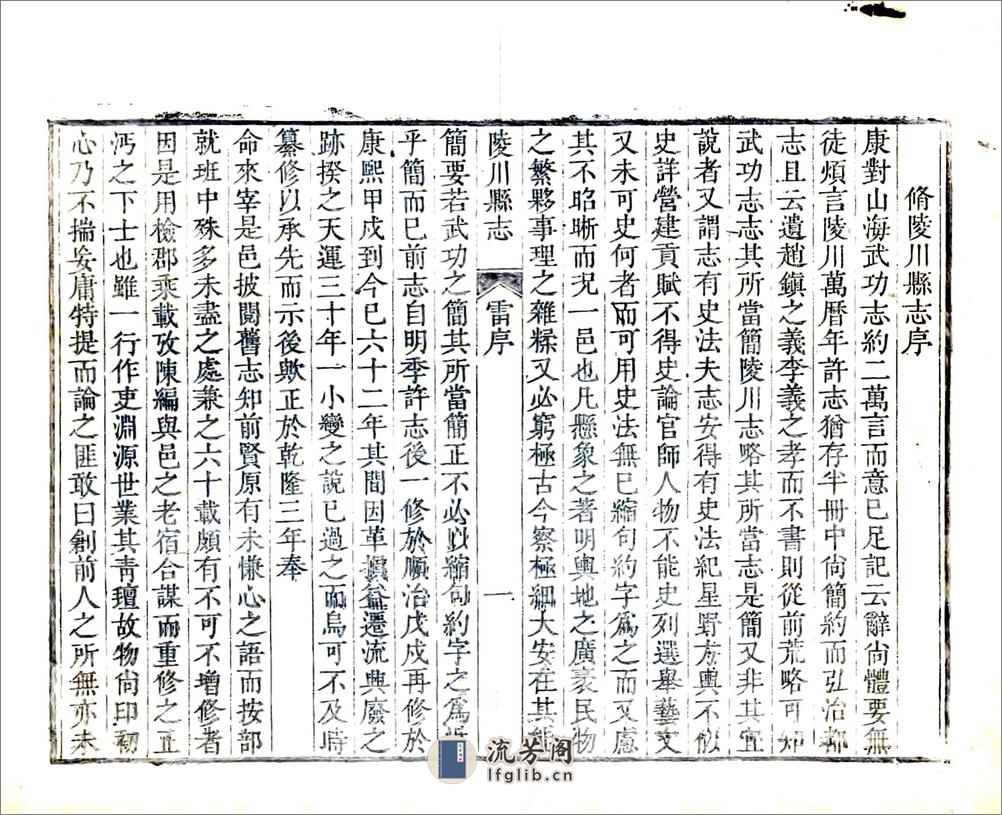 脩陵川縣志序
康對山海武功志約二萬言而意已足記云辭尚體要無
徒煩言陵川萬曆年許志猶存半冊中尚簡約而弘治郡
志且云遺趙鎮之義李義之孝而不書則從前荒略可知
武功志志其所當簡陵川志略其所當志是簡又非其宜
說者又謂志有史法夫志安得有史法紀星野方輿不似
史詳營建貢賦不得史論官師人物不能史列選舉藝文
又未可史何者而可用史法無已縮句約字爲之而又慮
其不昭晰而況一邑也凡懸象之著明輿地之廣袤民物
之繁夥事理之雜糅又必窮極古今察極細大安在其能
陵川縣志
雷序
一
簡要若武功之簡其所當簡正不必以縮句約字之爲近
乎簡而已前志自明季許志後一修於順治戊戌再修於
康熙甲戌到今已六十二年其間因革損益遷流興廢之
跡揆之天運三十年一小變之說已過之而烏可不及時
纂修以承先而示後歟正於乾隆三年奉
命來宰是邑披閱舊志知前賢原有未慊心之語而按部
就班中殊多未盡之處兼之六十載頗有不可不增修者
因是用檢郡乘載攷陳編與邑之老宿合謀而重修之正
沔之下士也雖一行作吏淵源世業其青氊故物尚印初
心乃不揣妄庸特提而論之匪敢曰創前人之所無亦未
流芳阁
lfglib.cn